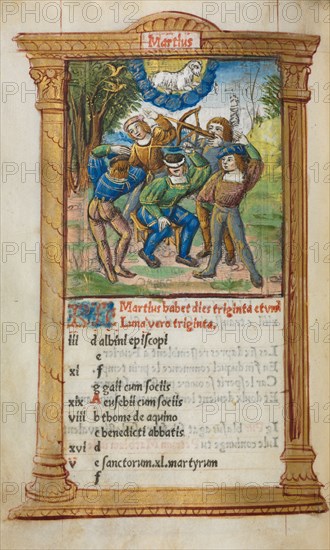 Martius
Martius habet dies triginta et vnū
Luna vero triginta.
iii d albini episcopi
e
xi f
g gaii cum sociis
xix A euschii cum sociis
viii b thome de aquino
c benedicti abbatis
xvi d
v e sanctorum.xl.martyrum
f